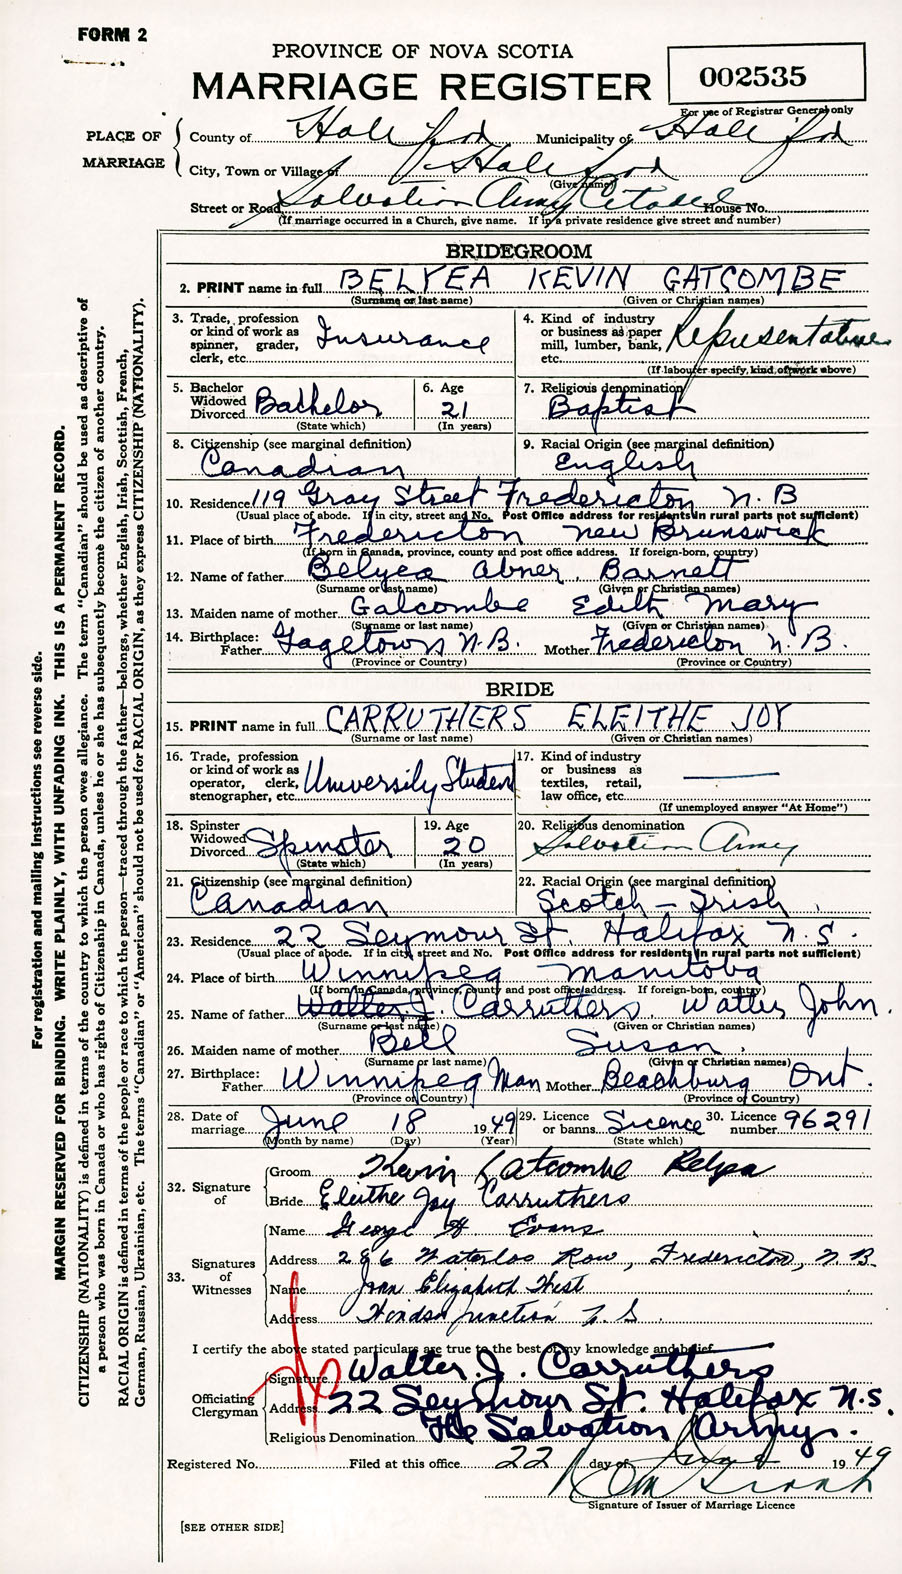 FORM 2
PROVINCE OF NOVA SCOTIA
MARRIAGE REGISTER
002535
For use of Registrar General only
PLACE OF MARRIAGE
County of Halifax Municipality of Halifax
City, Town or Village of Halifax
(Give name)
Street or Road Salvation Army Citadel House No.
(If marriage occurred in a Church, give name. If in a private residence give street and number)
BRIDEGROOM
2. PRINT name in full BELYEA KEVIN GATCOMBE
(Surname or last name) (Given or Christian names)
3. Trade, profession or kind of work as spinner, grader, clerk, etc. Insurance
4. Kind of industry or business as paper mill, lumber, bank, etc. Representative
(If labourer specify, kind of work above)
5. Bachelor Widowed Divorced Bachelor
(State which)
6. Age 21
(In years)
7. Religious denomination Baptist
8. Citizenship (see marginal definition) Canadian
9. Racial Origin (see marginal definition) English
10. Residence 119 Gray Street Fredericton N.B
(Usual place of abode. If in city, street and No. Post Office address for residents in rural parts not sufficient)
11. Place of birth Fredericton New Brunswick
(If born in Canada, province, county and post office address. If foreign-born, country)
12. Name of father Belyea Abner. Barnett
(Surname or last name) (Given or Christian names)
13. Maiden name of mother Gatcombe Edith Mary
(Surname or last name) (Given or Christian names)
14. Birthplace: Father Gagetown N.B. Mother Fredericton N.B.
(Province or Country) (Province or Country)
BRIDE
15. PRINT name in full CARRUTHERS ELEITHE JOY
(Surname or last name) (Given or Christian names)
16. Trade, profession or kind of work as operator, clerk, stenographer, etc. University Student
17. Kind of industry or business as textiles, retail, law office, etc.
(If unemployed answer "At Home")
18. Spinster Widowed Divorced Spinster
(State which)
19. Age 20
(In years)
20. Religious denomination Salvation Army
21. Citizenship (see marginal definition) Canadian
22. Racial Origin (see marginal definition) Scotch - Irish
23. Residence 22 Seymour St. Halifax N.S.
(Usual place of abode. If in city, street and No. Post Office address for residents in rural parts not sufficient)
24. Place of birth Winnipeg Manitoba
(If born in Canada, province, county and post office address. If foreign-born, country)
25. Name of father Walter J. Carruthers. Walter John.
(Surname or last name) (Given or Christian names)
26. Maiden name of mother Bell Susan.
(Surname or last name) (Given or Christian names)
27. Birthplace: Father Winnipeg Man Mother Beachburg Ont.
(Province or Country) (Province or Country)
28. Date of marriage June 18 1949
(Month by name) (Day) (Year)
29. Licence or banns Licence
(State which)
30. Licence number 96291
32. Signature of
Groom Kevin Gatcombe Belyea
Bride Eleithe Joy Carruthers
33. Signatures of Witnesses
Name George H Evans
Address 286 Waterloo Row, Fredericton, N.B.
Name Joan Elizabeth West
Address Windsor Junction N.S.
I certify the above stated particulars are true to the best of my knowledge and belief.
Officiating Clergyman
Signature Walter J. Carruthers
Address 22 Seymour St. Halifax N.S.
Religious Denomination The Salvation Army.
Registered No. Filed at this office 22 day of June 1949
Signature of Issuer of Marriage Licence
[SEE OTHER SIDE]
For registration and mailing instructions see reverse side.
MARGIN RESERVED FOR BINDING. WRITE PLAINLY, WITH UNFADING INK. THIS IS A PERMANENT RECORD.
CITIZENSHIP (NATIONALITY) is defined in terms of the country to which the person owes allegiance. The term "Canadian" should be used as descriptive of
a person who was born in Canada or who has rights of Citizenship in Canada, unless he or she has subsequently become the citizen of another country.
RACIAL ORIGIN is defined in terms of the people or race to which the person—traced through the father—belongs, whether English, Irish, Scottish, French,
German, Russian, Ukrainian, etc. The terms "Canadian" or "American" should not be used for RACIAL ORIGIN, as they express CITIZENSHIP (NATIONALITY).